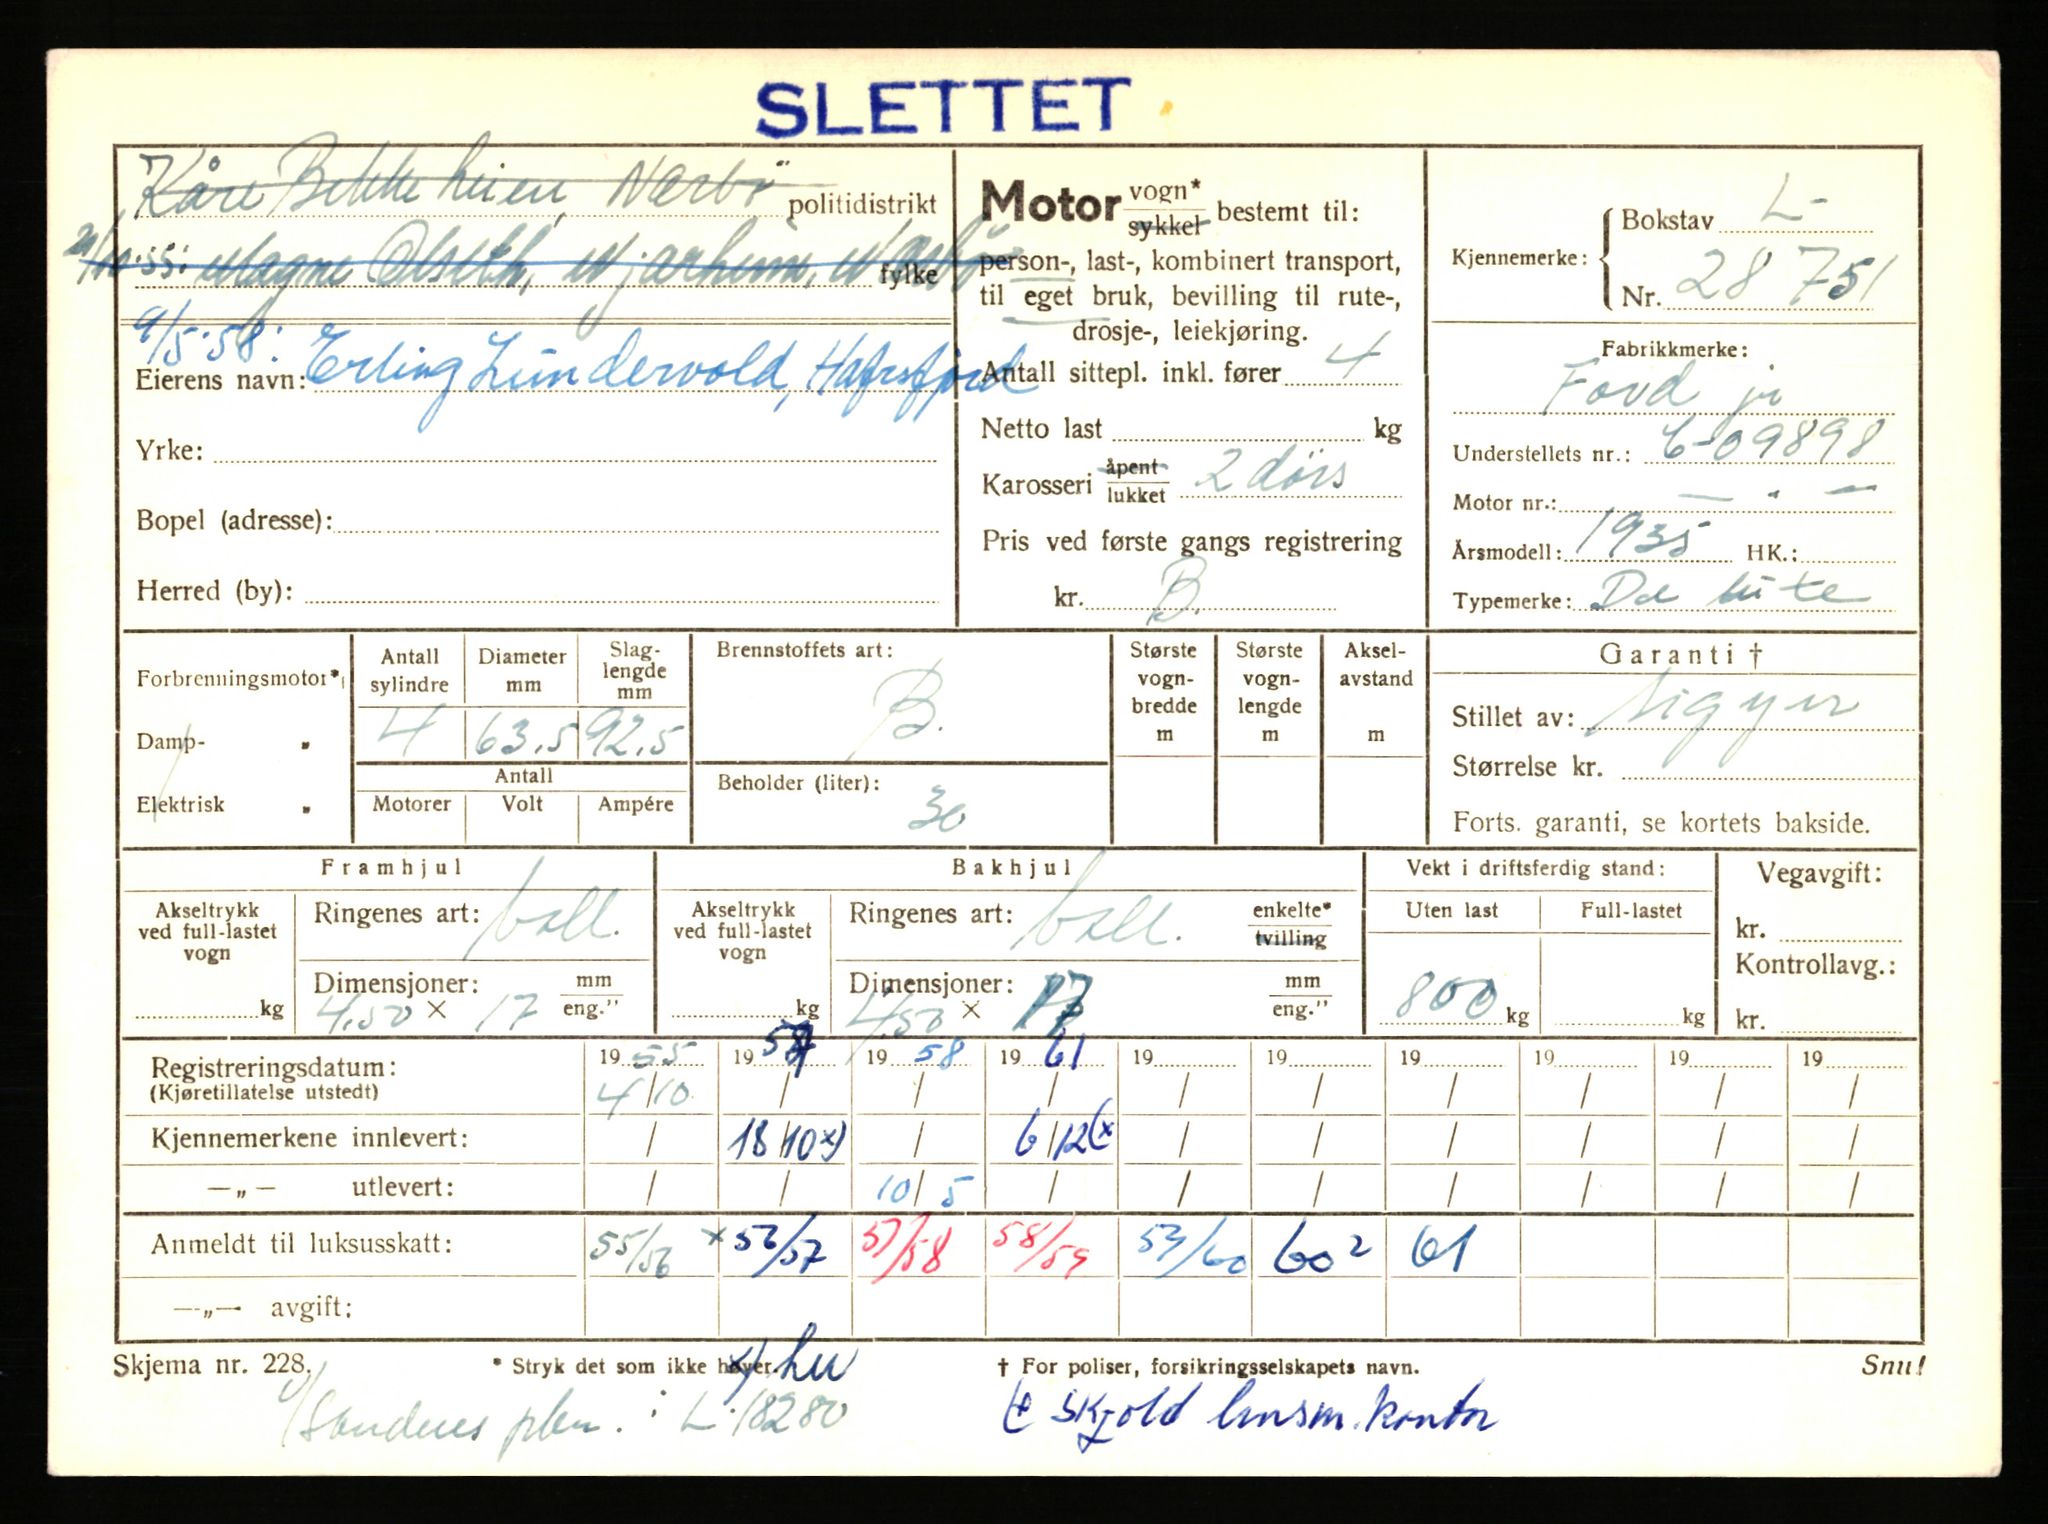 SLETTET
Kåre Bekkeheien, Nærbö politidistrikt
Magne Olseth, fylke
9/5-58: Erling Lundervold, Hafrsfjord
Eierens navn:
Yrke:
Bopel (adresse):
Herred (by):
Motor vogn* / sykkel bestemt til:
person-, last-, kombinert transport,
til eget bruk, bevilling til rute-,
drosje-, leiekjøring.
Antall sittepl. inkl. fører 4
Netto last kg
Karosseri åpent / lukket 2 dörs
Pris ved første gangs registrering
kr. B.
Kjennemerke: Bokstav L-
Nr. 28751
Fabrikkmerke:
Ford jr
Understellets nr.: C-09898
Motor nr.: — " —
Årsmodell: 1935 HK.:
Typemerke: De luxe
Forbrenningsmotor*
Damp- "
Elektrisk "
Antall sylindre 4
Diameter mm 63.5
Slaglengde mm 92.5
Antall
Motorer Volt Ampére
Brennstoffets art:
B.
Beholder (liter):
30
Største vogn-bredde m
Største vogn-lengde m
Aksel-avstand m
Garanti †
Stillet av: Sigyn
Størrelse kr.
Forts. garanti, se kortets bakside.
Framhjul
Akseltrykk ved full-lastet vogn kg
Ringenes art: ball.
Dimensjoner: mm / eng."
4.50 × 17
Bakhjul
Akseltrykk ved full-lastet vogn kg
Ringenes art: ball. enkelte* / tvilling
Dimensjoner: mm / eng."
4.50 × 17
Vekt i driftsferdig stand:
Uten last Full-lastet
800 kg kg
Vegavgift:
kr.
Kontrollavg.:
kr.
Registreringsdatum: 1955 1957 1958 1961 19 19 19 19 19 19
(Kjøretillatelse utstedt) 4/10 / / / / / / / / /
Kjennemerkene innlevert: / 18/10 x) / 6/12 (x / / / / / /
—„— utlevert: / / 10/5 / / / / / / /
Anmeldt til luksusskatt: 55/56 x 56/57 57/58 58/59 59/60 60² 61
—„— avgift:
Skjema nr. 228. * Stryk det som ikke høyer. x) hu † For poliser, forsikringsselskapets navn. Snu!
: L-18280 Skjold lensm. kontor